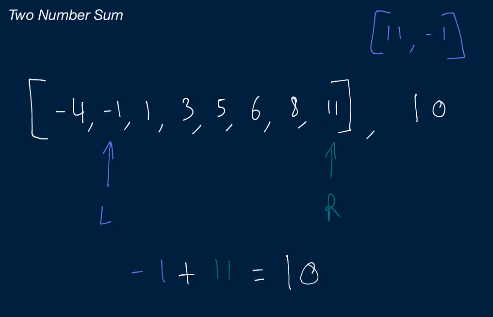 Two Number Sum
[11, -1]
[-4, -1, 1, 3, 5, 6, 8, 11], 10
L R
-1 + 11 = 10